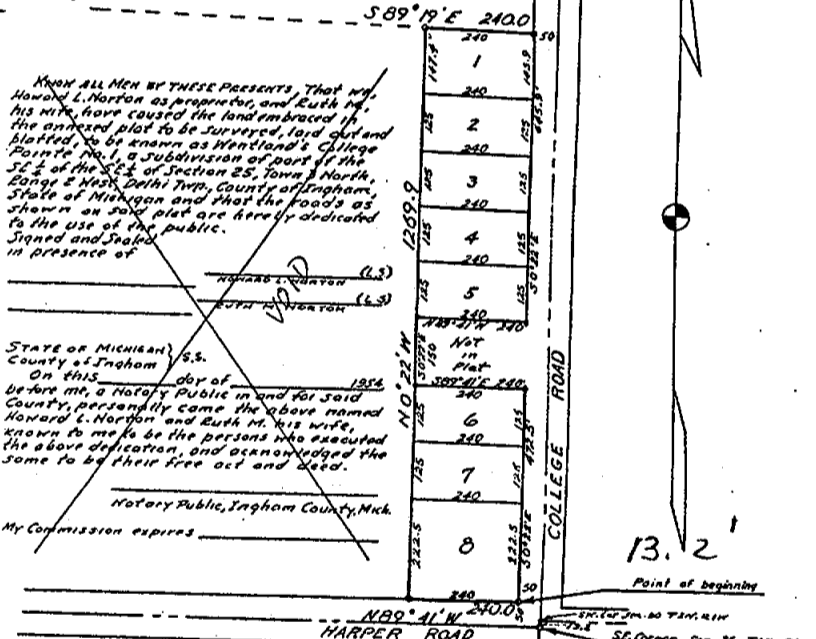 S 89° 19' E 240.0
240
50
KNOW ALL MEN BY THESE PRESENTS, That we,
Howard L. Norton as proprietor, and Ruth M.,
his wife, have caused the land embraced in
the annexed plat to be surveyed, laid out and
platted, to be known as Wentland's College
Pointe No. 1, a subdivision of part of the
SE ¼ of the SE ¼ of Section 25, Town 3 North,
Range 2 West, Delhi Twp., County of Ingham,
State of Michigan and that the roads as
shown on said plat are hereby dedicated
to the use of the public.
Signed and Sealed
in presence of
(L.S)
HOWARD L. NORTON
(L.S)
RUTH M. NORTON
VOID
STATE OF MICHIGAN } S.S.
County of Ingham
On this day of 1954
before me, a Notary Public in and for said
County, personally came the above named
Howard L. Norton and Ruth M. his wife,
known to me to be the persons who executed
the above dedication, and acknowledged the
same to be their free act and deed.
Notary Public, Ingham County, Mich.
My Commission expires
147.4
1
145.9
240
645.9
125
2
125
240
125
3
125
240
1269.9
125
4
125
S0°22'E
240
125
5
125
240
N89°41'W 240
S0°22'E
150
Not
in
Plat
N 0° 22' W
S89°41'E 240
240
125
6
125
240
472.5
125
7
125
240
222.5
8
222.5
S0°22'E
COLLEGE ROAD
13.2'
Point of beginning
240
50
N89° 41' W 240.0
50
HARPER ROAD